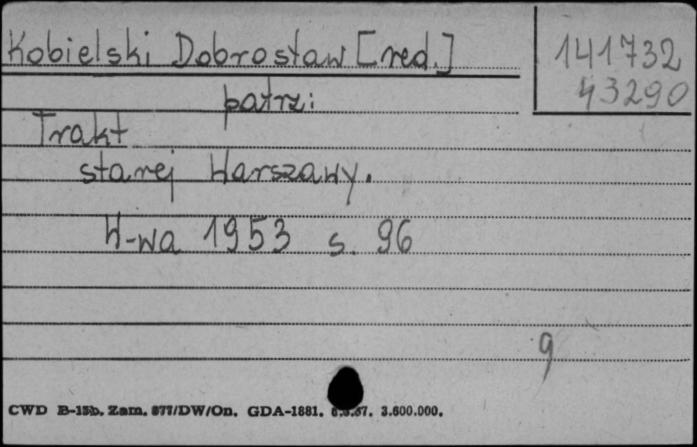 Kobielski Dobrosław [red.]
141732
43290
patrz:
Trakt
starej Warszawy.
W-wa 1953 s. 96
9
CWD B-15b. Zam. 877/DW/On. GDA-1881. 3.600.000.